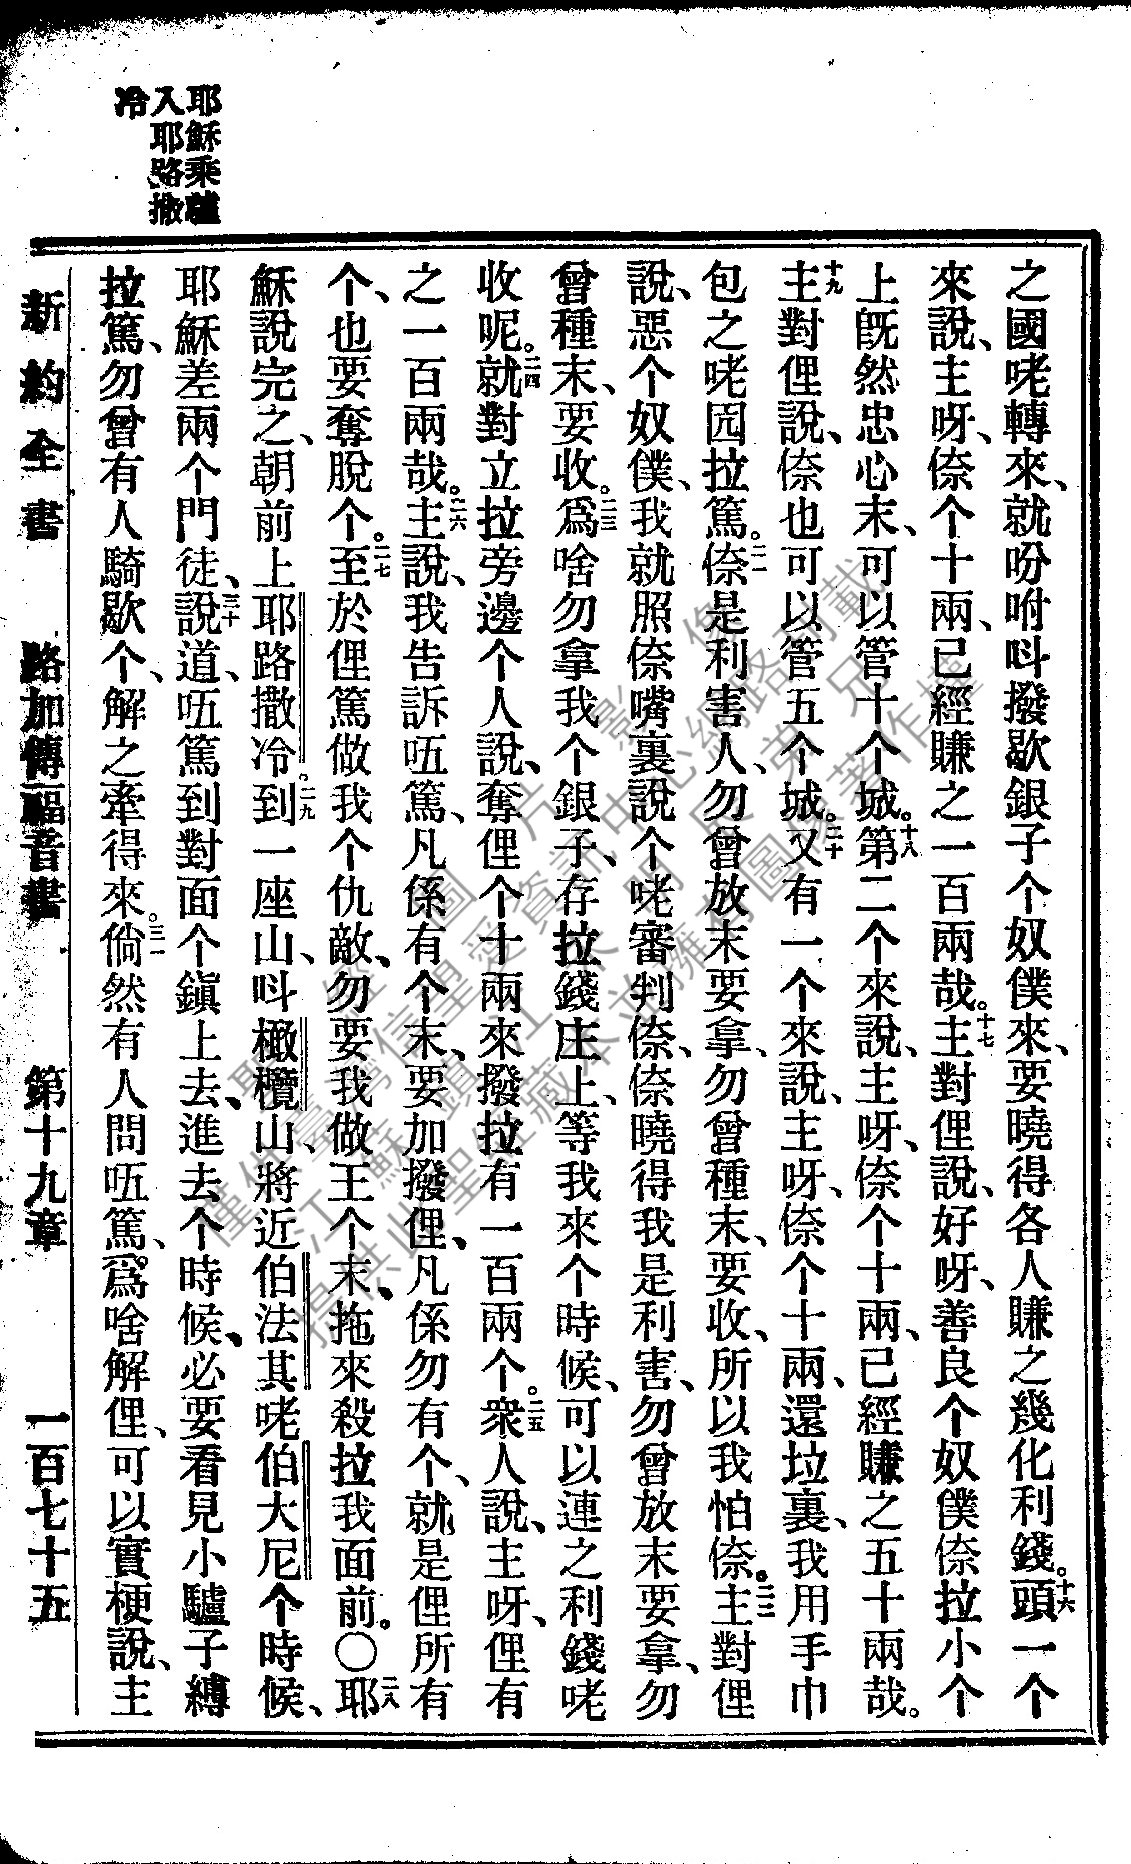 耶穌乘驢
入耶路撒
冷
之國咾轉來、就吩咐呌撥歇銀子个奴僕來、要曉得各人賺之幾化利錢。十六頭一个
來說、主呀、倷个十兩、已經賺之一百兩哉。十七主對俚說、好呀、善良个奴僕倷拉小个
上旣然忠心末、可以管十个城。十八第二个來說、主呀、倷个十兩、已經賺之五十兩哉。
十九主對俚說、倷也可以管五个城。二十又有一个來說、主呀、倷个十兩、還垃裏、我用手巾
包之咾园拉篤。二一倷是利害人、勿曾放末要拿、勿曾種末、要收、所以我怕倷。二二主對俚
說、惡个奴僕、我就照倷嘴裏說个咾審判倷、倷曉得我是利害、勿曾放末要拿、勿
曾種末、要收。二三爲啥勿拿我个銀子、存拉錢庄上、等我來个時候、可以連之利錢咾
收呢。二四就對立拉旁邊个人說、奪俚个十兩來撥拉有一百兩个。二五衆人說、主呀、俚有
之一百兩哉。二六主說、我告訴㕶篤、凡係有个末、要加撥俚、凡係勿有个、就是俚所有
个、也要奪脫个。二七至於俚篤做我个仇敵、勿要我做王个末、拖來殺拉我面前。〇二八耶
穌說完之、朝前上耶路撒冷。二九到一座山、呌橄欖山、將近伯法其咾伯大尼个時候、
耶穌差兩个門徒、三十說道、㕶篤到對面个鎭上去、進去个時候、必要看見小驢子縛
拉篤、勿曾有人騎歇个、解之牽得來。三一倘然有人問㕶篤、爲啥解俚、可以實梗說、主
新約全書 路加傳福音書 第十九章 一百七十五